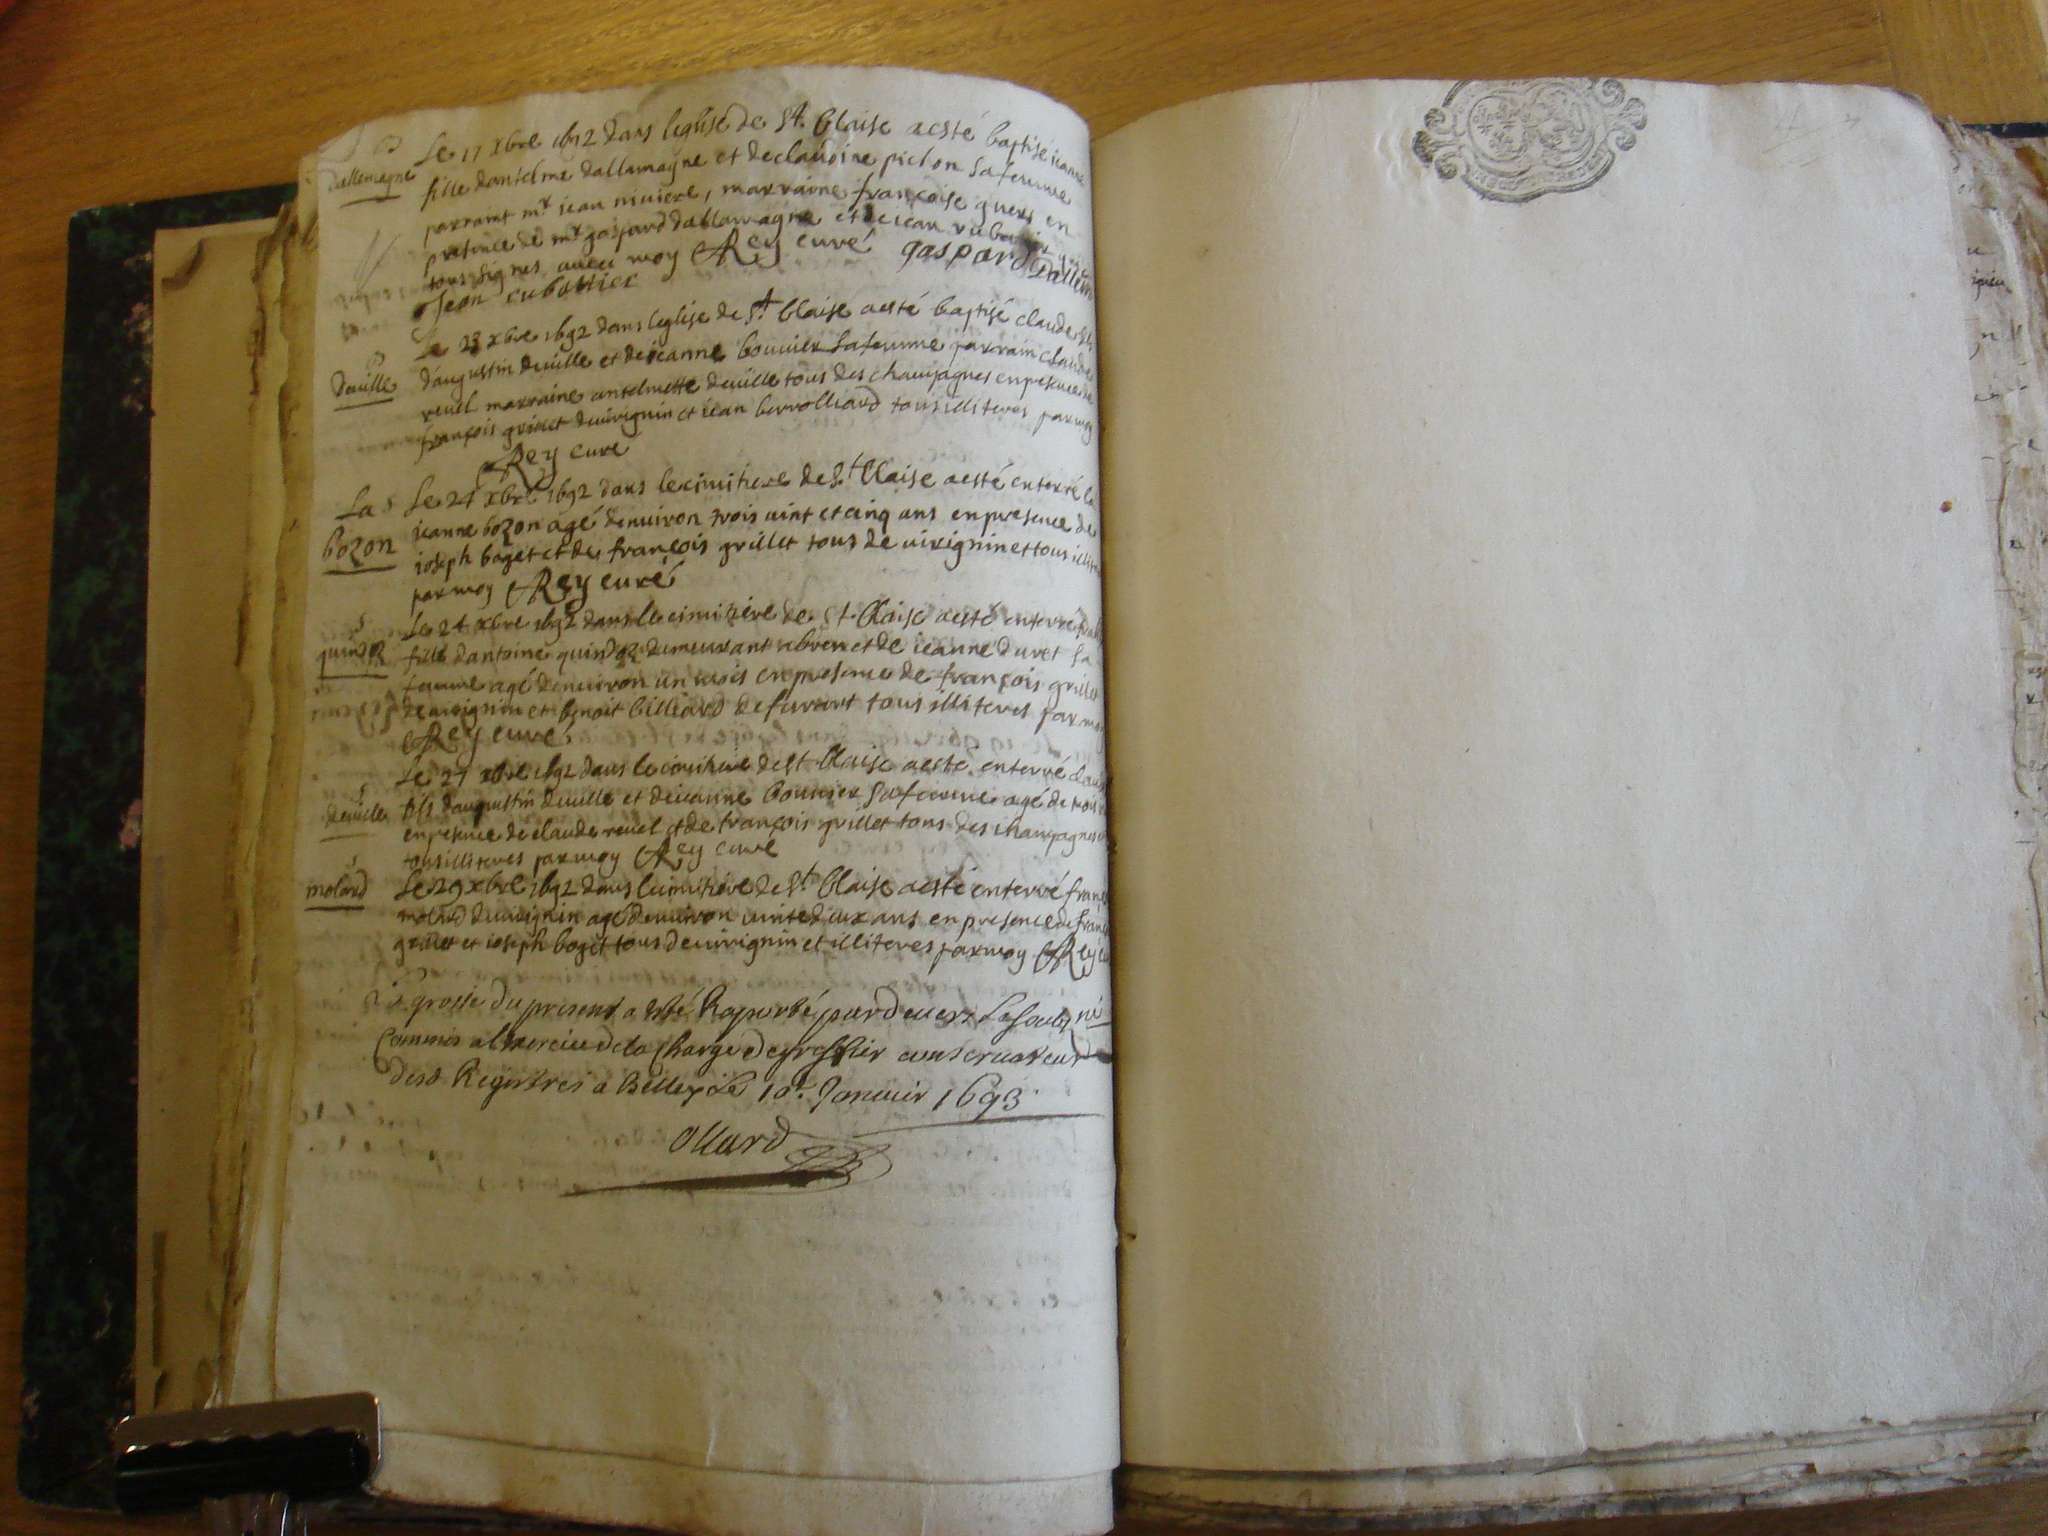 Le 17 xbre 1692 dans leglise de St. blaise a esté baptisé jeanne
dallemagne
fille dantelme dallamagne et de claudine pichon sa femme
parraint mr. jean niviere, marraine françoise guers en
presence de mr. gaspard dallamagne et de jean
tous signes avec moy Rey curé gaspard
Jean cubottier
Le 23 xbre 1692 dans leglise de St. blaise a esté baptisé claude
deville
d'augustin deville et de jeanne bouvier sa femme parrain claude
revel marraine antelmette deville tous des champagnes en presence
françois grillet de virignin et jean tous illiteres par moy
Rey cure
Le 24 xbre 1692 dans le cimitiere de St blaise a esté enterré la
La s
bozon
jeanne bozon agé denuiron trois vint et cinq ans en presence de
joseph boget et de françois grillet tous de virignin et tous
par moy Rey curé
s
Le 24 xbre 1692 dans le cimitiere de St. blaise a esté enterré
fille dantoine demeurant et de jeanne duret sa
femme agé denuiron un mois en presence de françois grillet
de virignin et benoit billiard tous illiteres par moy
Rey curé
Le 27 xbre 1692 dans le cimitiere de St blaise a esté enterré
s
deville
fils d'augustin deville et de jeanne bouvier sa femme agé de trois
en presence de claude revel et de françois grillet tous des champagnes
tous illiteres par moy Rey cure
s
molard
Le 29 xbre 1692 dans le cimitiere de St. blaise a esté enterré
molard de virignin agé denuiron en presence de
grillet et joseph boget tous de virignin et illiteres par moy Rey
La grosse du present a esté Raporté par devers Le soubz né
Commis a lexercice de la Charge de greffier conservateur
desd Registres a Belley Le 10e. Janvier 1693
Ollard